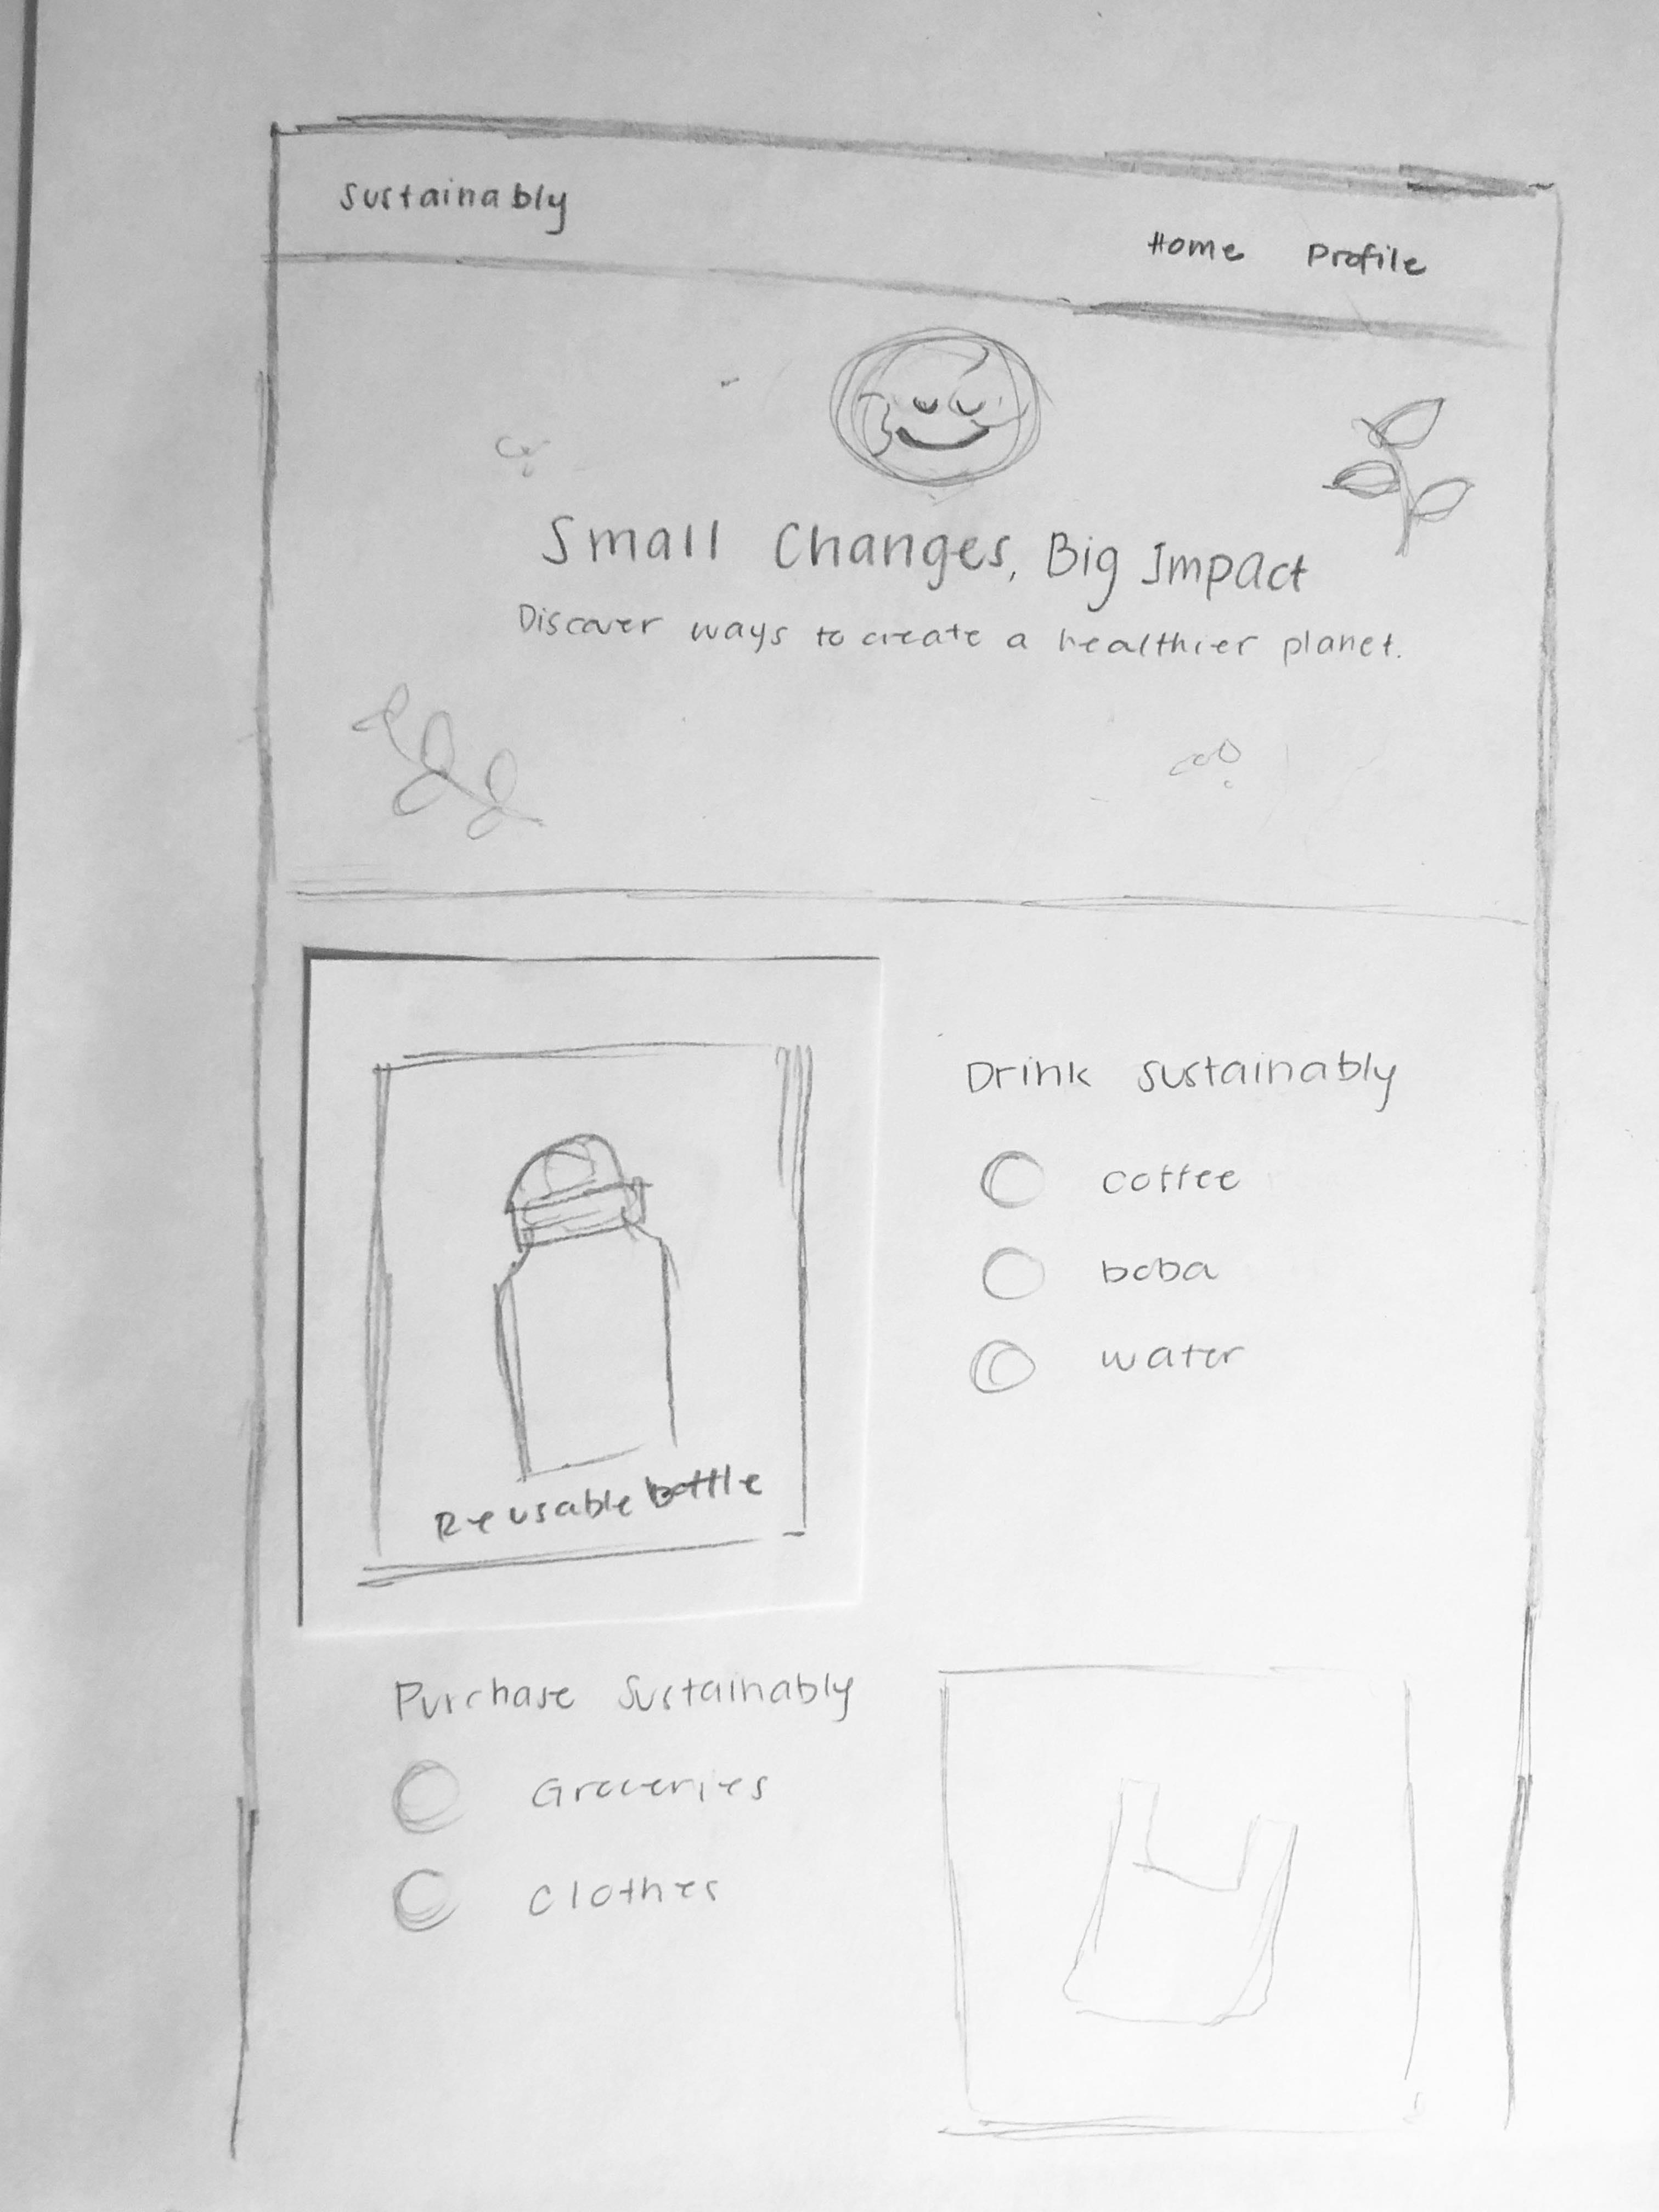 Sustainably
Home Profile
Small Changes, Big Impact
Discover ways to create a healthier planet.
Drink sustainably
coffee
boba
water
Reusable bottle
Purchase Sustainably
Groceries
clothes